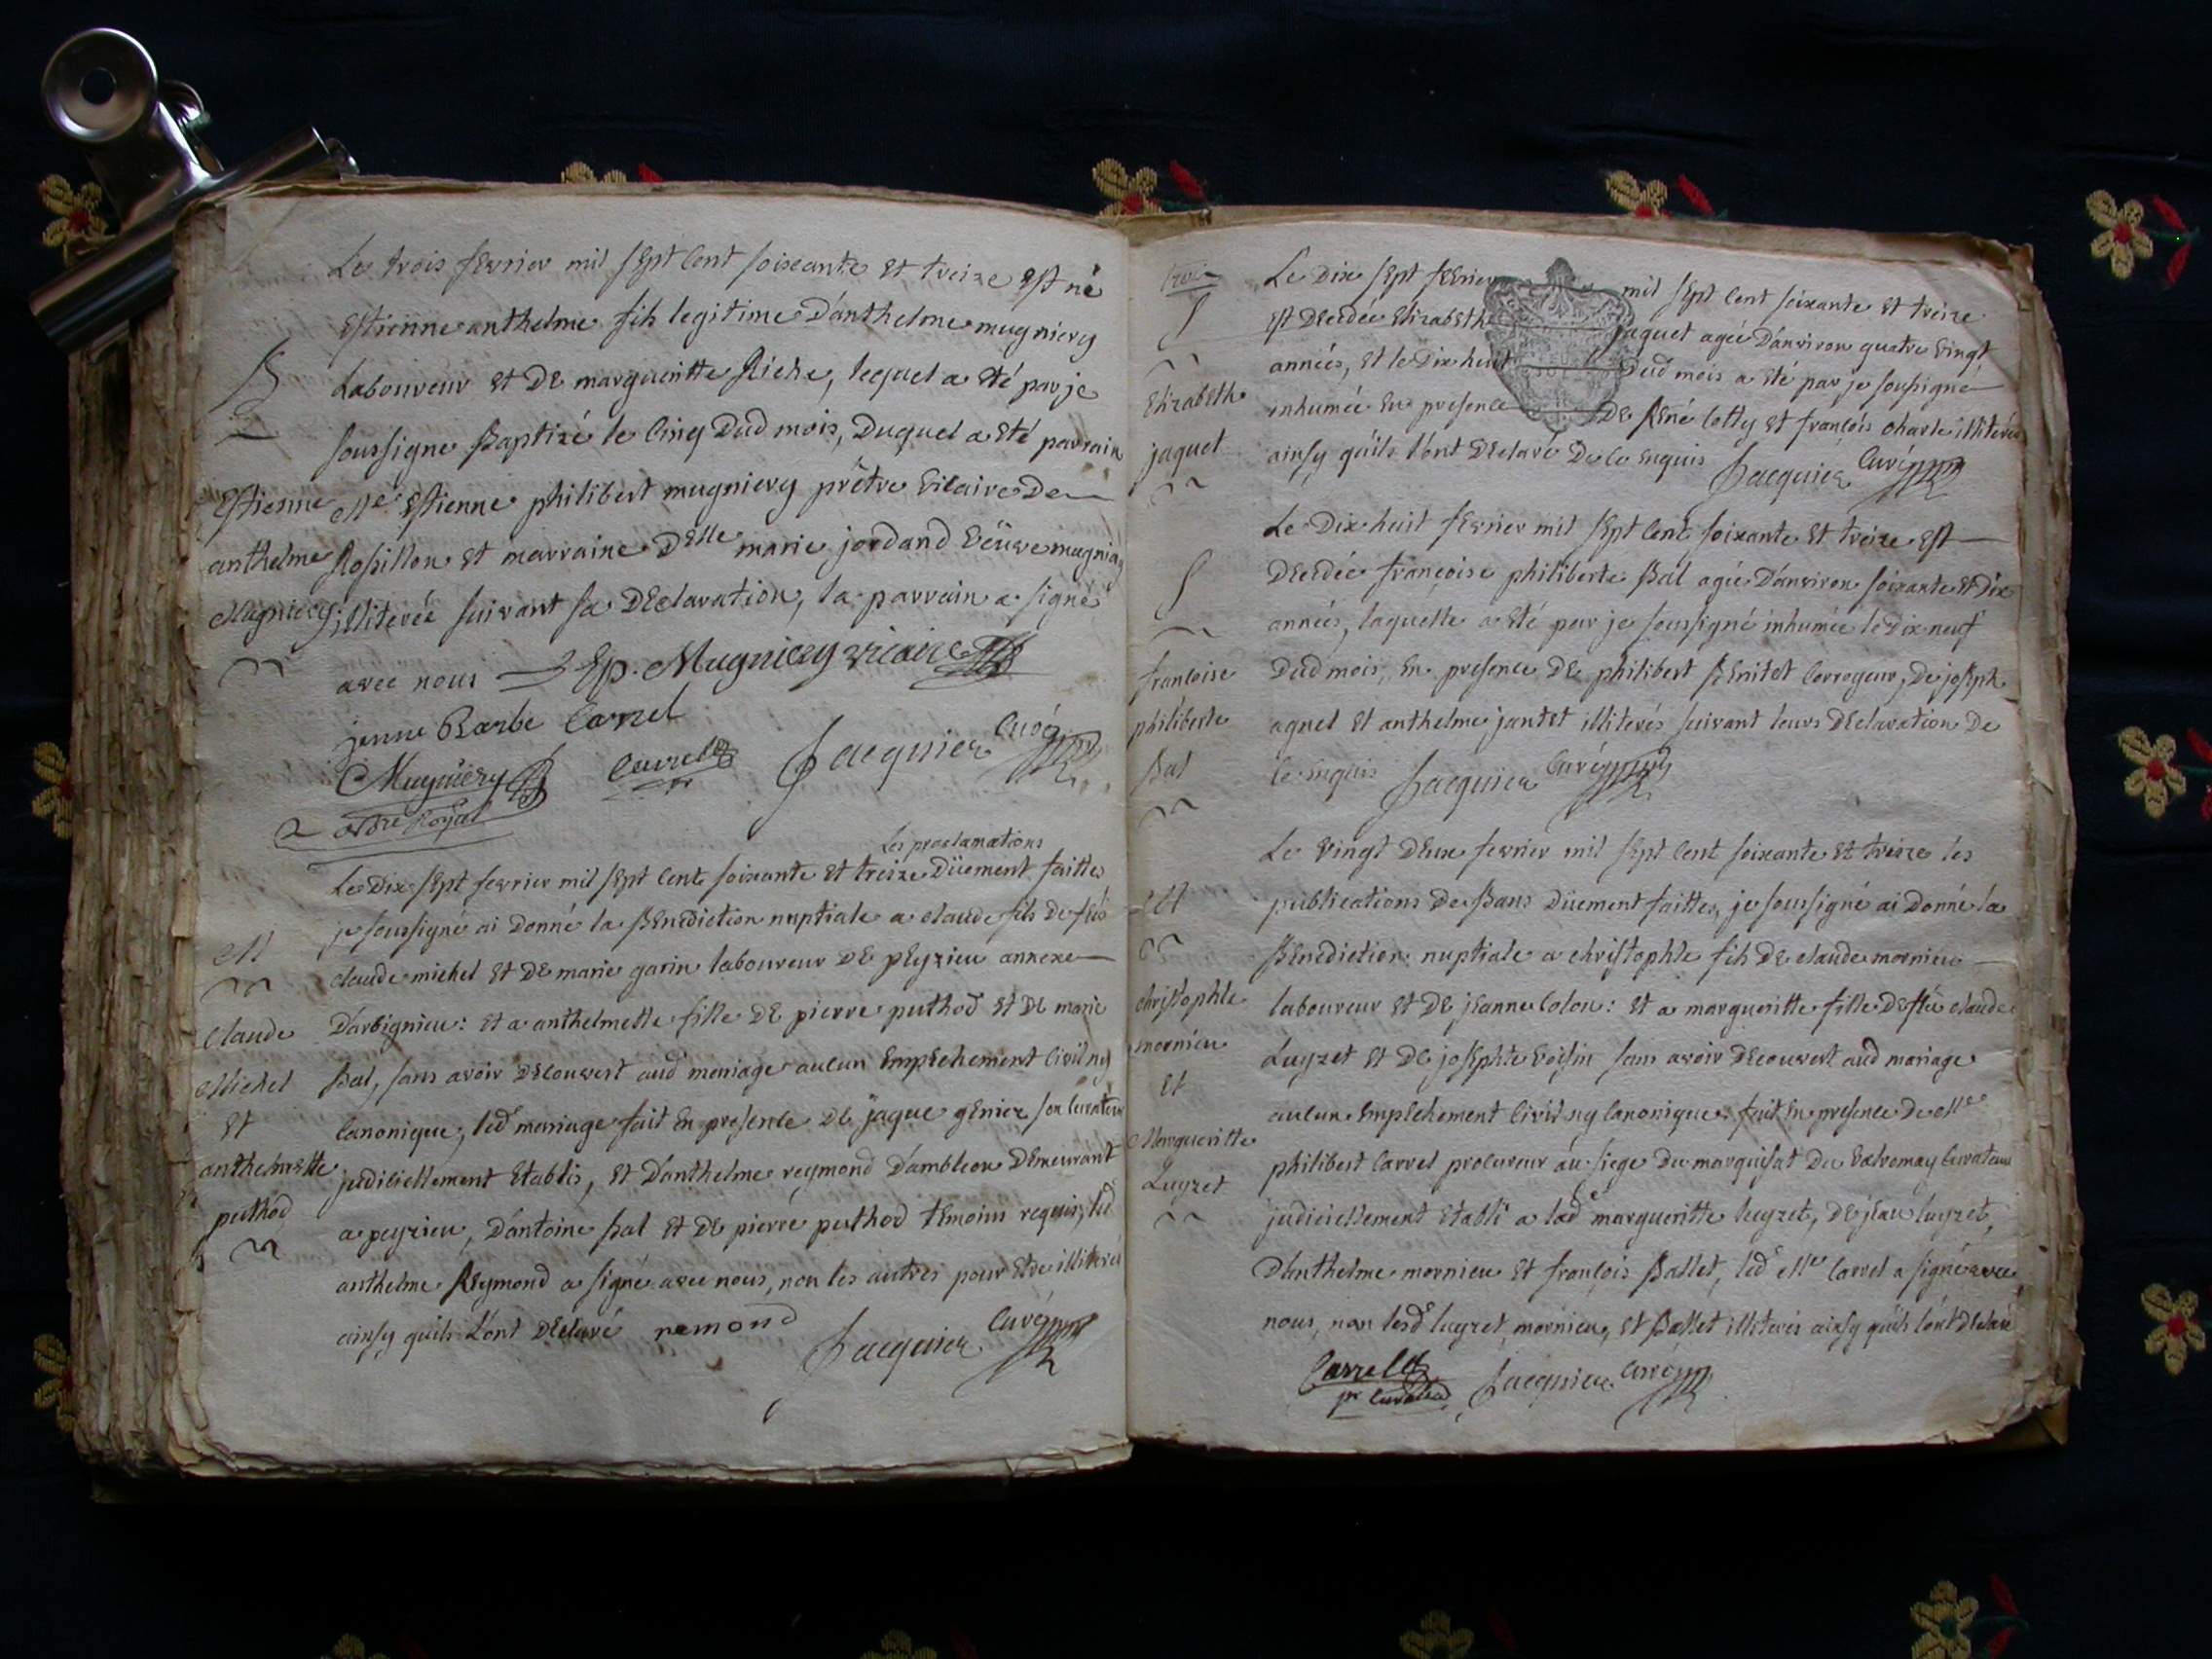 Le trois fevrier mil sept cent soixante et treize est né
Estienne anthelme fils legitime d'anthelme mugniery
B
Laboureur et de margueritte Riche, lequel a eté par je
soussigne Baptizé le cinq dud mois, duquel a eté parrain
Estienne
anthelme
Mugniery
Mre Estienne philibert mugniery prêtre vicaire de
Rossillon et marraine Delle marie jordand veuve mugniery
illiterée suivant sa declaration, la parrain a signé
avec nous Ep. Mugniery vicaire
jenne Barbe Carrel
Mugniery Carrel Jacquier Curé
Les proclamations
Le dix sept fevrier mil sept cent soixante et treize düement faittes
je soussigné ai donné la Benediction nuptiale a claude fils de feu
M
claude
Michel
et
anthelmette
puthod
claude michel et de marie garin laboureur de peyrieu annexe
d'arbignieu: et a anthelmette fille de pierre puthod et de marie
Bal, sans avoir decouvert aud mariage aucun empechement civil ny
canonique, led mariage fait en presence de jaque genier son curateur
judiciellement etablis, et d'anthelme reymond d'ambleon demeurant
a peyrieu, d'antoine Bal et de pierre puthod temoins requis, led
anthelme Reymond a signé avec nous, non les autres pour etre illiterés
ainsy quils l'ont declaré remond Jacquier Curé
S
Elizabeth
jaquet
Le dix sept fevrier mil sept cent soixante et treize
est decedée Elizabeth jaquet agée d'anviron quatre vingt
années, et le dix huit dud mois a eté par je soussigné
inhumée en presence de René Cotty et françois charle illiterés
ainsy quils l'ont declaré de ce enquis Jacquier Curé
S
francoise
philiberte
Bal
Le dix huit fevrier mil sept cent soixante et treize est
decedée françoise philiberte Bal agée d'anviron soixante et dix
années, laquelle a eté par je soussigné inhumée le dix neuf
dud mois, en presence de philibert Benitet corroyeur, de joseph
agnel et anthelme jantet illiterés suivant leurs declaration de
ce enquis Jacquier Curé
M
christophle
mornieu
et
Margueritte
Luyzet
Le vingt deux fevrier mil sept cent soixante et treize les
publications de Bans düement faittes, je soussigné ai donné la
Benediction nuptiale a christophle fils de claude mornieu
laboureur et de jeanne Colon: et a margueritte fille de feu claude
Luyzet et de josephte voisin sans avoir decouvert aud mariage
aucun empechement civil ny canonique fait en presence de Mre
philibert Carrel procureur au siege du marquisat du valromay curateur
judiciellement etabli a lad margueritte luyzet, de jean luyzet,
d'anthelme mornieu et françois Ballet, led Mre Carrel a signé avec
nous, non lesd luyzet, mornieu, et Ballet illiterés ainsy quils l'ont declaré
Carrel Jacquier Curé